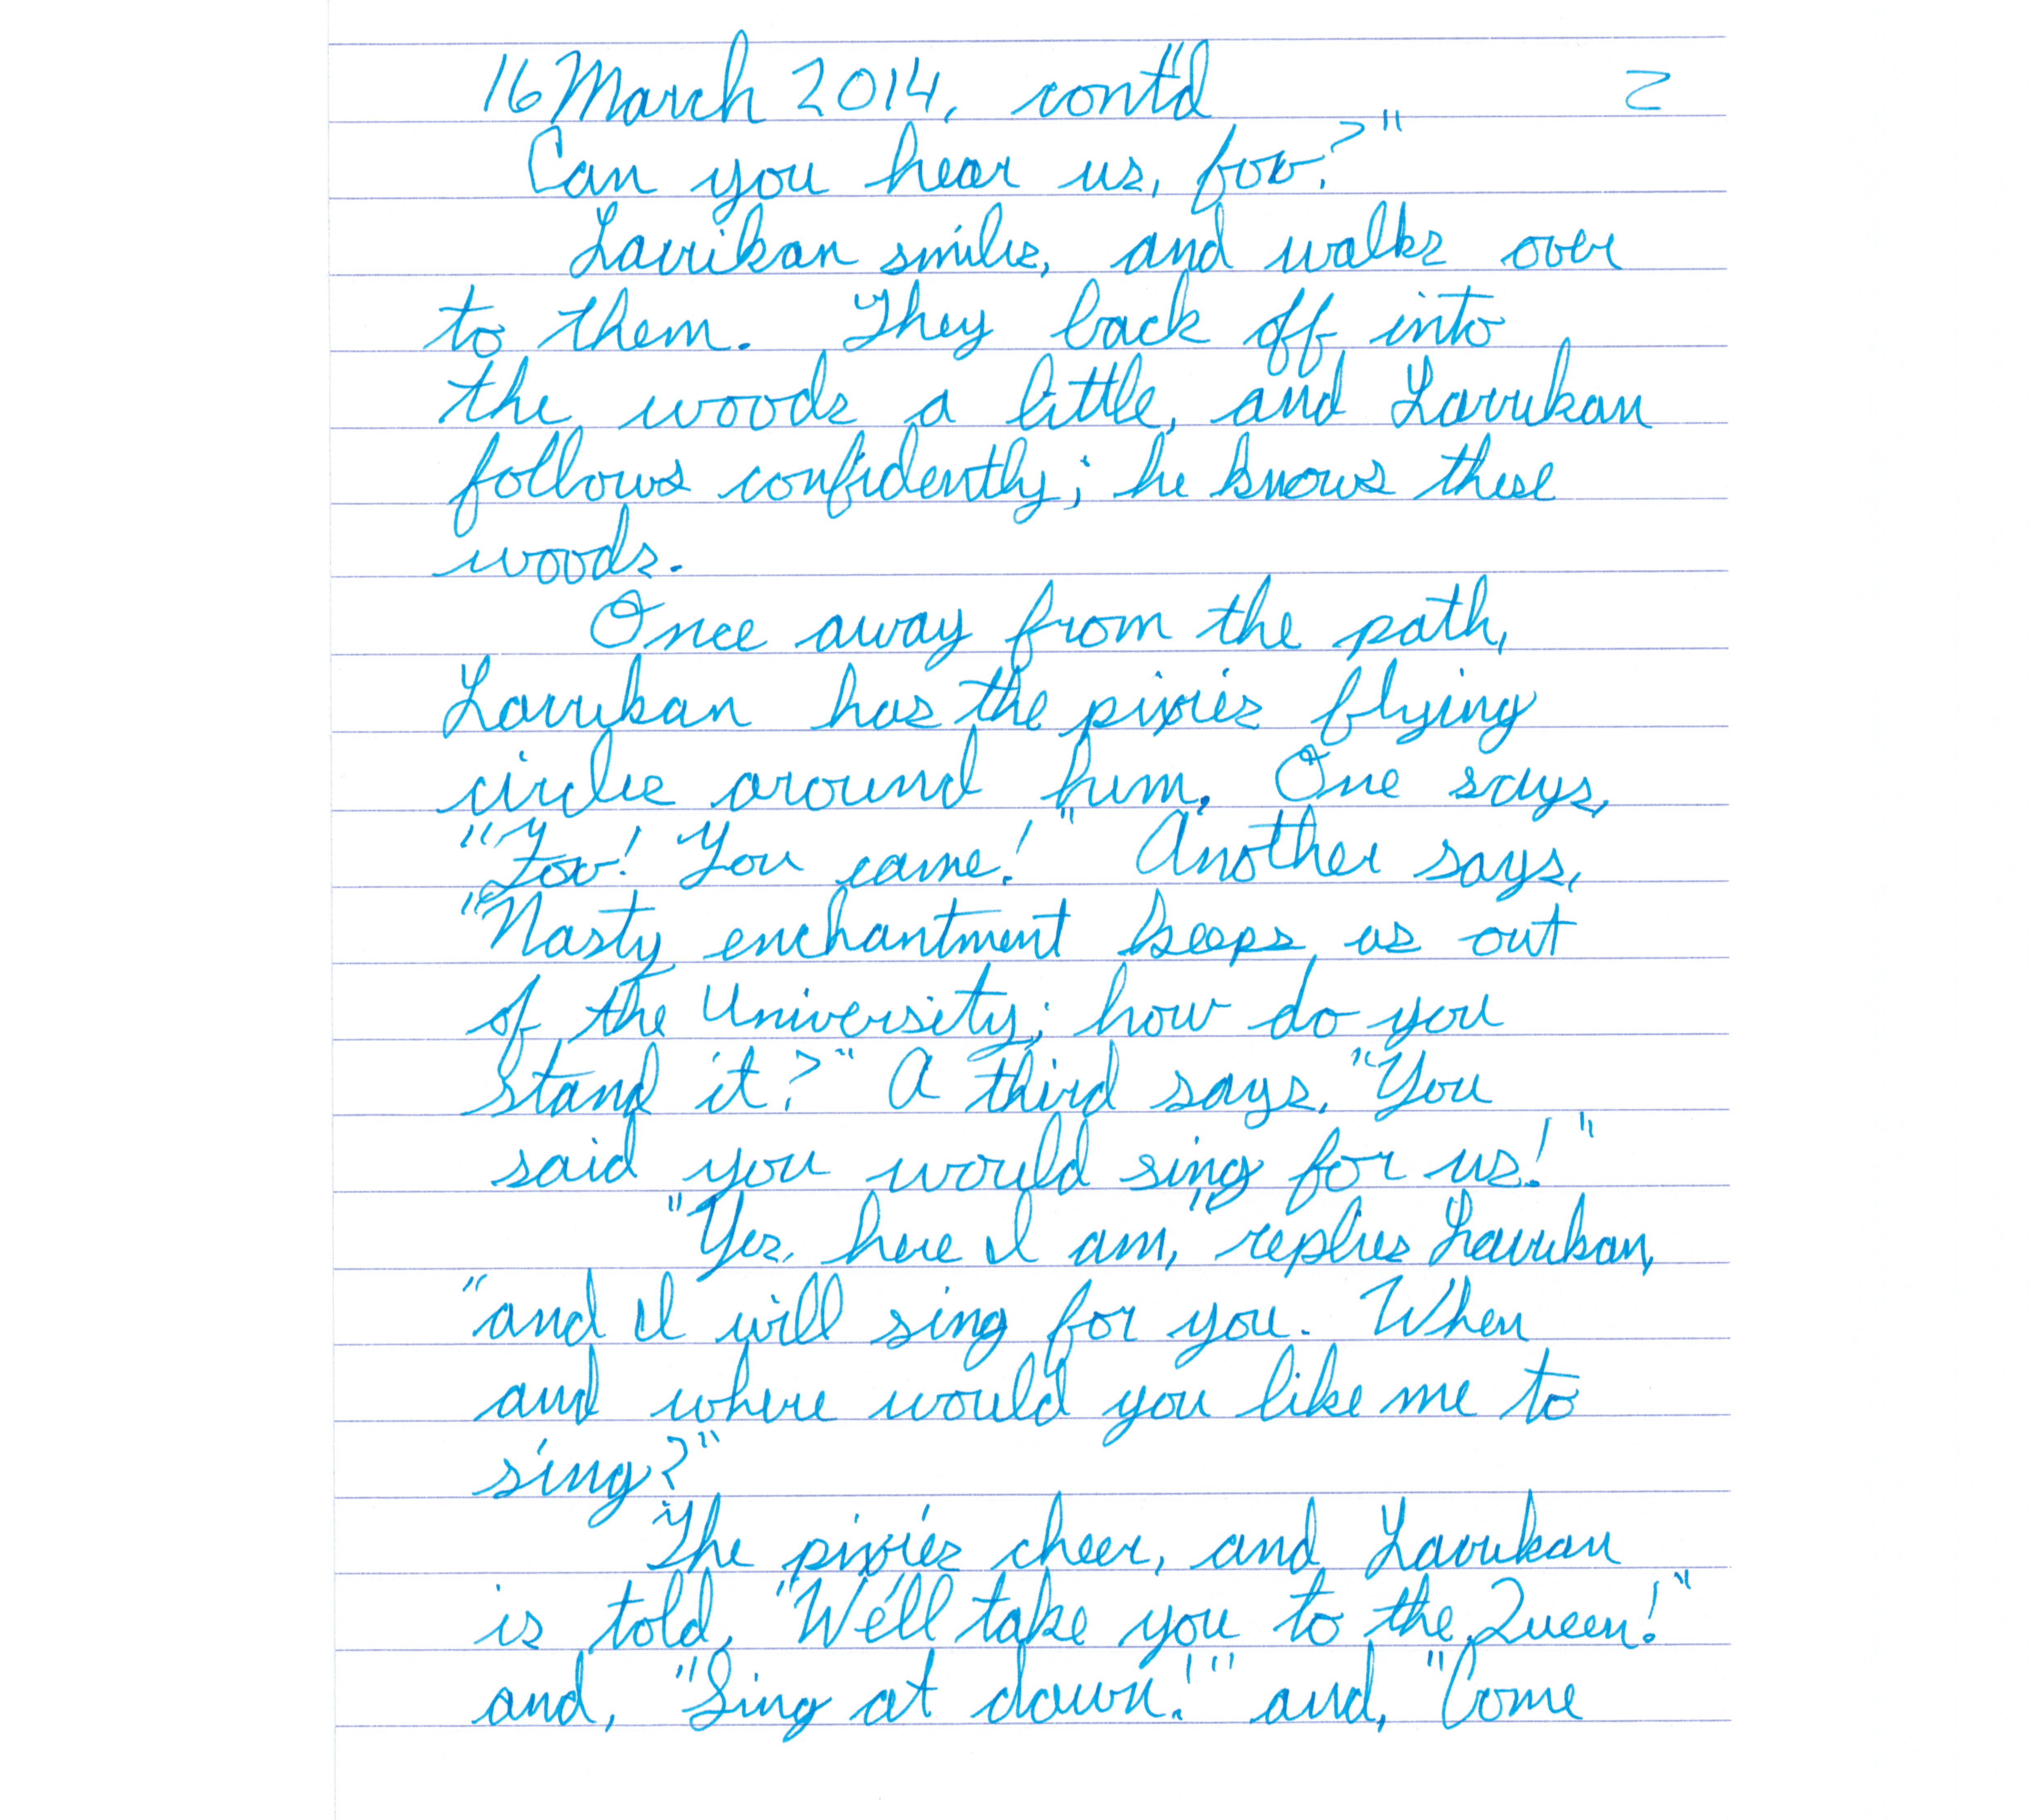 16 March 2014, cont'd 2
Can you hear us, foo?"
Larrikan smiles, and walks over
to them. They back off into
the woods a little, and Larrikan
follows confidently; he knows these
woods.
Once away from the path,
Larrikan has the pixies flying
circles around him. One says,
"Foo! You came!" Another says,
"Nasty enchantment keeps us out
of the University; how do you
stand it?" A third says, "You
said you would sing for us!"
"Yes, here I am," replies Larrikan,
"and I will sing for you. When
and where would you like me to
sing?"
The pixies cheer, and Larrikan
is told, "We'll take you to the Queen!"
and, "Sing at dawn!" and, "Come